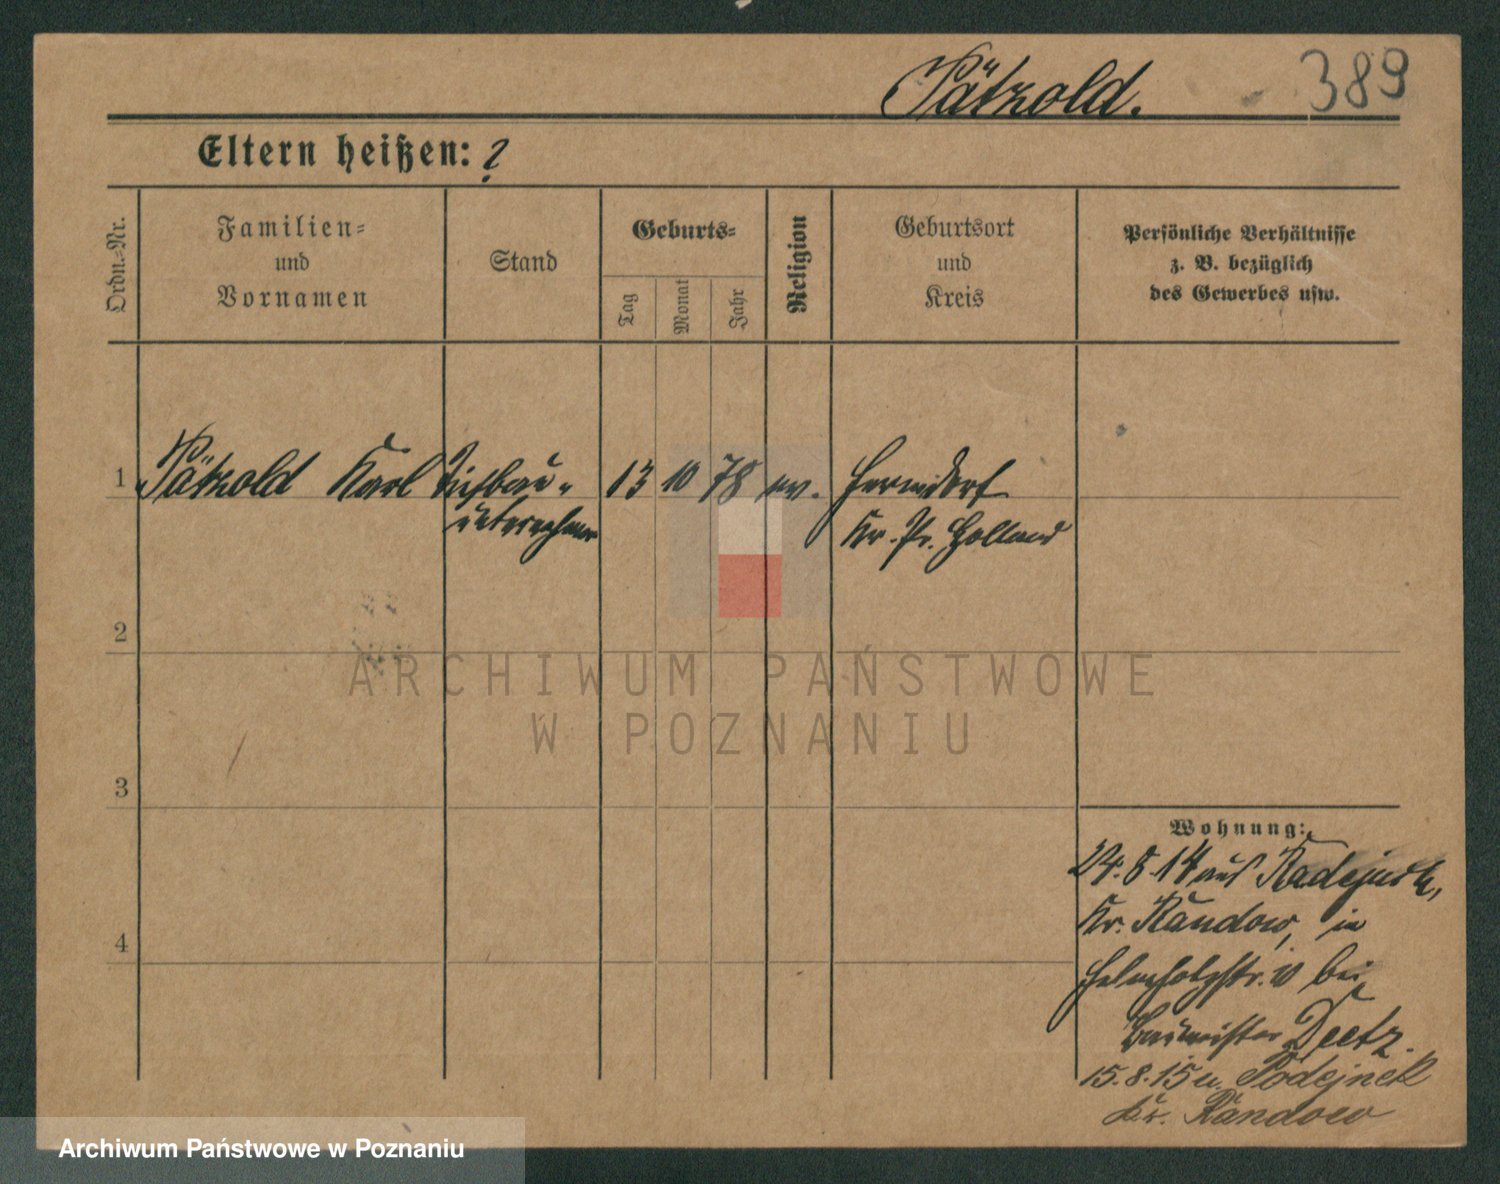 Pätzold.
389
Eltern heißen: ?
Ordn.-Nr.
Familien-
und
Vornamen
Stand
Geburts-
Tag
Monat
Jahr
Religion
Geburtsort
und
Kreis
Persönliche Verhältnisse
z. B. bezüglich
des Gewerbes usw.
1
Pätzold Karl
Tiefbau-
unternehmer
13
10
78
ev.
Hermsdorf
Kr. Pr. Holland
2
3
4
Wohnung:
24.8.14 aus
Kr. Randow, in
Helmholtzstr. 10 bei
Baumeister Deetz.
15.8.15 n. Podejuch
Kr. Randow
ARCHIWUM PAŃSTWOWE
W POZNANIU
Archiwum Państwowe w Poznaniu